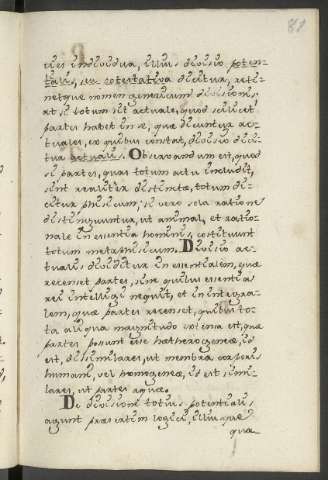 81
cies individua, illius divisio poten-
tialis, seu potestativa dicitur, reti-
netque nomen genericum divisionis
at si totum sit actuale, quod scilicet
partes habet in se, quæ dicuntur ac-
tuales, ex quibus constat, divisio dici-
tur actualis. Observandum est, quod
si partes, quas totum actu includit,
sint realiter distinctæ, totum di-
citur phisicum; si vero sola ratione
distinguuntur, ut animal, et ratio-
nale in essentia hominis, costituunt
totum metaphisicum. Divisio ac-
tualis dividitur in essentialem, quæ
recenset partes, sine quibus essentia
rei intelligi nequit, et in integra-
lem, quæ partes recenset, quibus to-
ta aliqua magnitudo coiena est, quæ
partes possunt esse hætherogeneæ, id
est, dissimilares, ut membra corporis
humani, vel homogeneæ, id est simi-
lares, ut partes aquæ.
De divisione totius potentialis
agunt præsertim logici, illius quæ
quæ